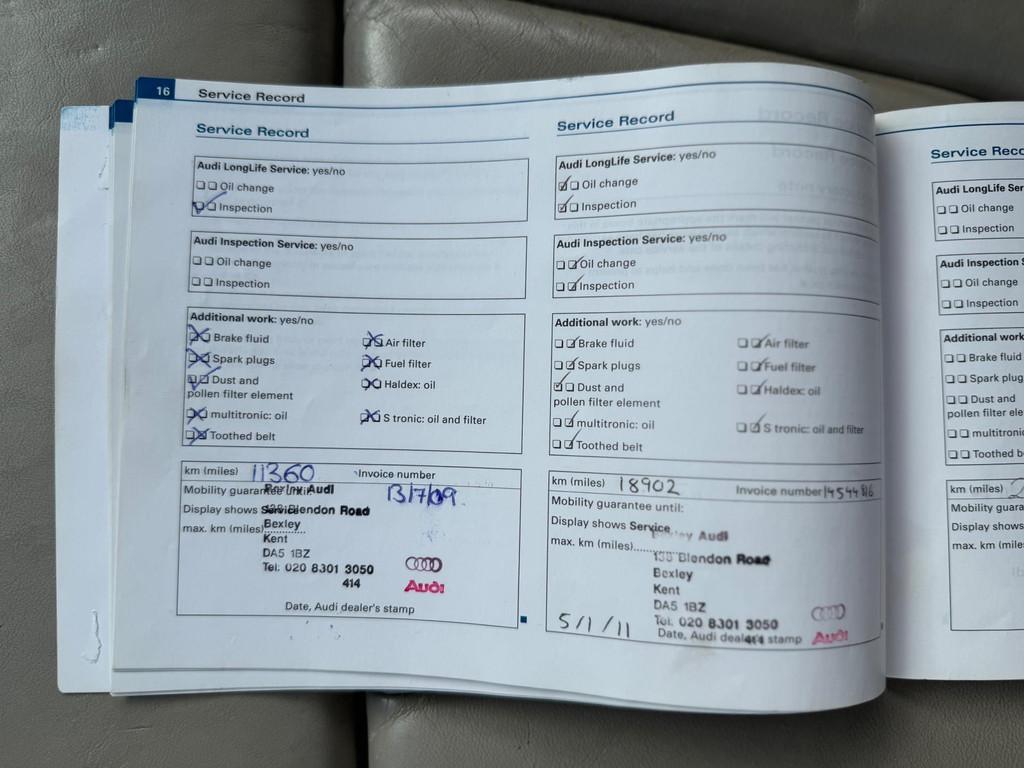 16 Service Record
Service Record
Audi LongLife Service: yes/no
Oil change
Inspection
Audi Inspection Service: yes/no
Oil change
Inspection
Additional work: yes/no
Brake fluid
Air filter
Spark plugs
Fuel filter
Dust and
pollen filter element
Haldex: oil
multitronic: oil
S tronic: oil and filter
Toothed belt
km (miles) 11360 Invoice number
Mobility guarantee until:
13/7/09
Display shows Service
max. km (miles)
Bexley Audi
138 Blendon Road
Bexley
Kent
DA5 1BZ
Tel: 020 8301 3050
414
Audi
Date, Audi dealer's stamp
Service Record
Audi LongLife Service: yes/no
Oil change
Inspection
Audi Inspection Service: yes/no
Oil change
Inspection
Additional work: yes/no
Brake fluid
Air filter
Spark plugs
Fuel filter
Dust and
pollen filter element
Haldex: oil
multitronic: oil
S tronic: oil and filter
Toothed belt
km (miles) 18902 Invoice number
Mobility guarantee until:
Display shows Service
max. km (miles)
Bexley Audi
138 Blendon Road
Bexley
Kent
DA5 1BZ
Tel: 020 8301 3050
414
Audi
5/1/11
Date, Audi dealer's stamp
Service
Audi LongLife
Oil change
Inspection
Audi Inspection
Oil change
Inspection
Additional work
Brake fluid
Spark
Dust and
pollen filter
Toothed
km (miles)
Mobility
Display shows
max. km (miles)